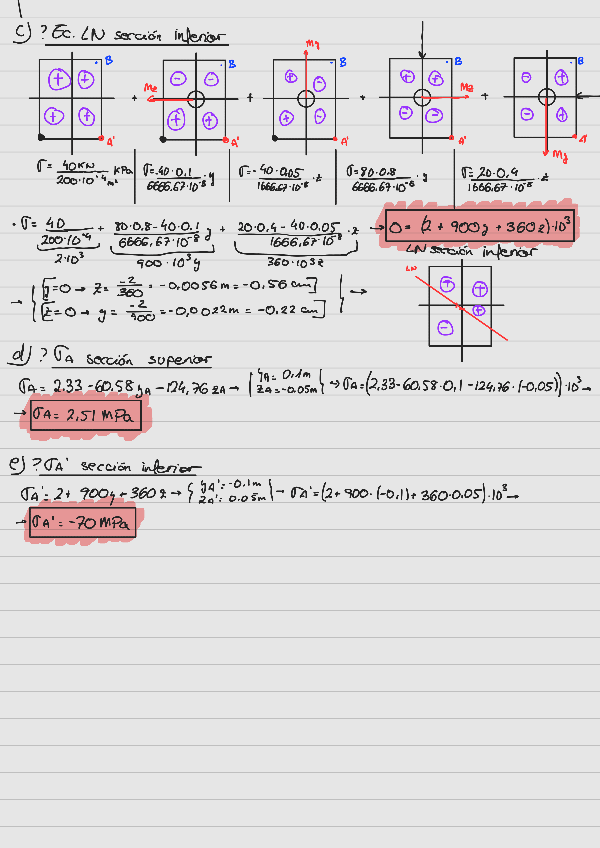 c) ? Ec. LN sección inferior
B B B B B
Mz My Mz My
A' A' A' A' A'
σ = 40KN / 200·10⁻⁴ m² kPa | σ = 40·0.1 / 6666.67·10⁻⁸ · y | σ = -40·0.05 / 1666.67·10⁻⁸ · z | σ = 80·0.8 / 6666.67·10⁻⁸ · y | σ = 20·0.4 / 1666.67·10⁻⁸ · z
· σ = 40 / 200·10⁻⁴ + 80·0.8-40·0.1 / 6666.67·10⁻⁸ y + 20·0.4-40·0.05 / 1666.67·10⁻⁸ · z → 0 = (2 + 900y + 360z)·10³
2·10³ 900·10³y 360·10³z
LN sección inferior
→ { [y=0 → z = -2/360 = -0.0056m = -0.56 cm]
[z=0 → y = -2/900 = -0.0022m = -0.22 cm] } →
LN
d) ? σA sección superior
σA = 2.33 - 60.58 yA - 124,76 zA → { yA = 0.1m zA = -0.05m } → σA = (2,33-60.58·0,1 - 124,76·(-0,05))·10³ →
→ σA = 2,51 MPa
e) ? σA' sección inferior
σA' = 2 + 900y + 360z → { yA' = -0.1m zA' = 0.05m } → σA' = (2 + 900·(-0,1) + 360·0.05)·10³ →
→ σA' = -70 MPa